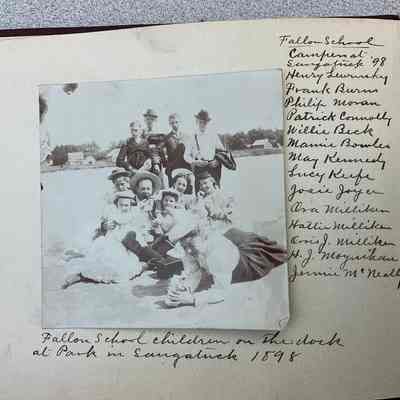 Fallon School
Campers at
Saugatuck '98
Henry Lewinsky
Frank Burns
Philip Moran
Patrick Connolly
Willie Beck
Mamie Bowles
May Kennedy
Lucy Keefe
Josie Joyer
Ora Milliken
Hattie Milliken
Orris J. Milliken
H. J. Moynihan
Jennie McNeall
Fallon School children on the dock
at Park in Saugatuck 1898